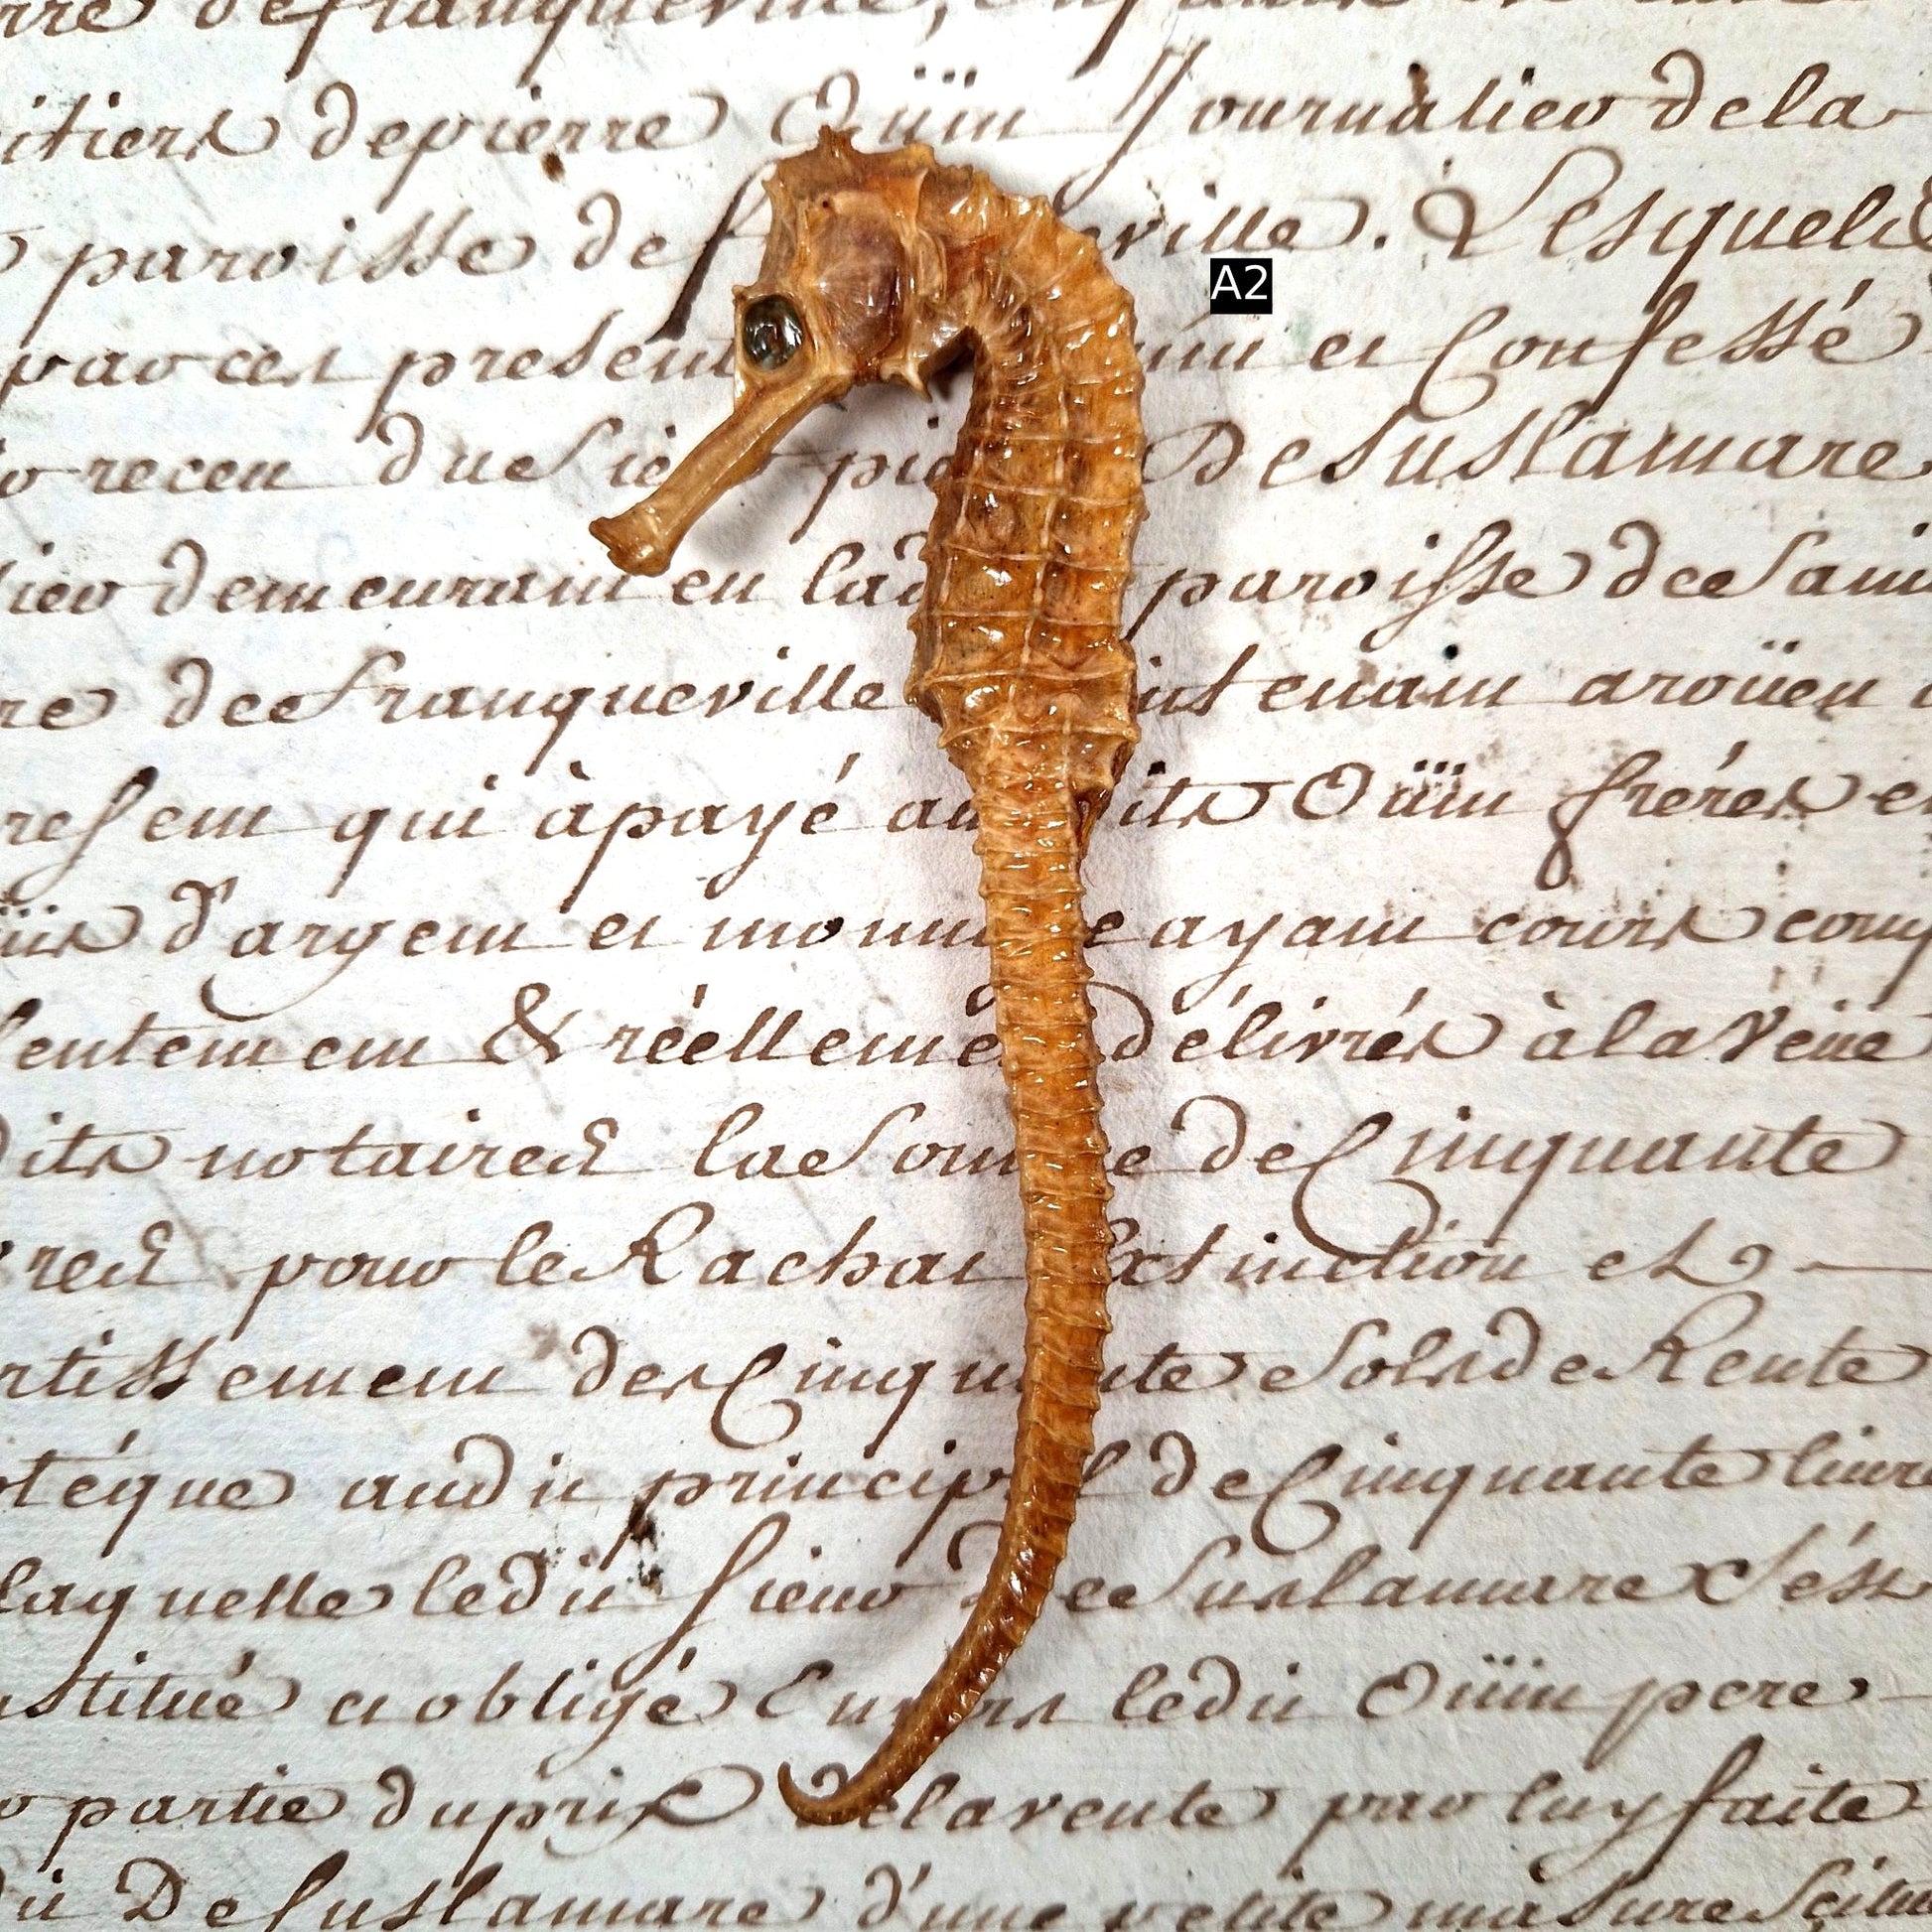 de franqueville, 
itiers de pierre Oüin Journalier dela
paroisse de ville. Lesquels
par ces present et Confessé
receu du Sie Desuslamare
demeurant en lad paroisse de Sain
re de franqueville enant
resent qui à payé au its Oüin fréres e
d'argent et monn e ayant cours
entement & réellement délivrés à la Veüe
dits notaires la Som e de Cinquante
res pour le Rachat Extinction et
rtissement des Cinqu nte Sols de Rente
otéque audit princip l de Cinquante livre
laquelle ledit sieur De Suslamare S'ést
stitué et obligé Envers ledit Oüin pere
partie du prix delavente par luy faite
DeSuslamare d'une petite masure Scitu
A2